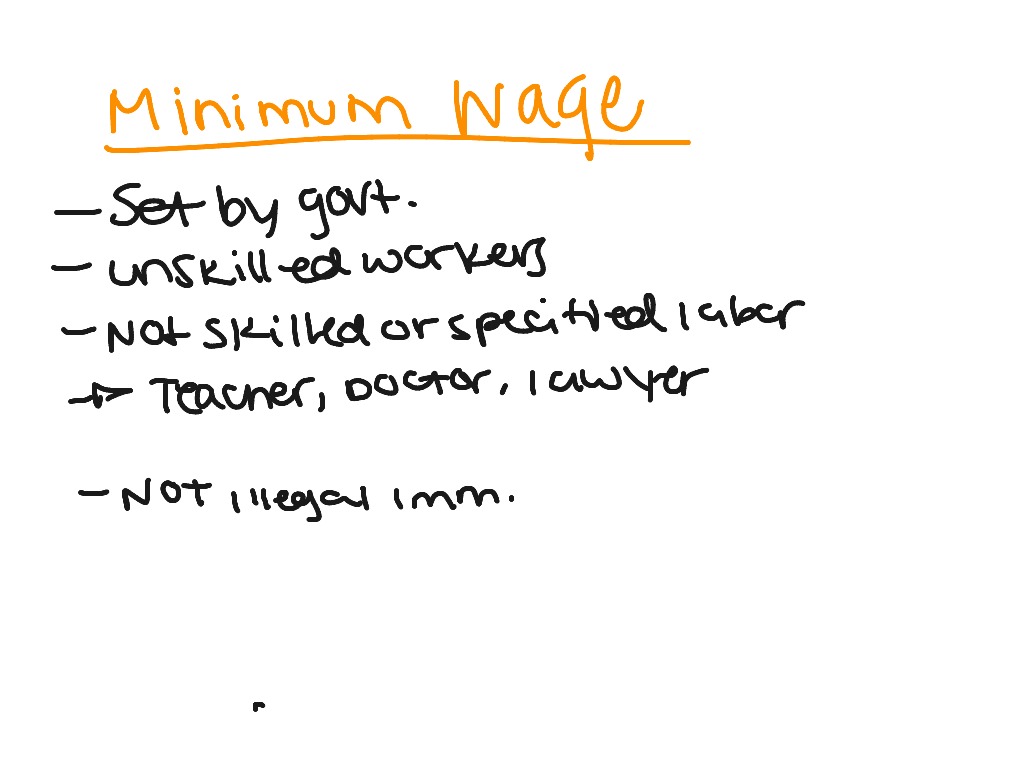 Minimum Wage
- Set by govt.
- unskilled workers
- Not skilled or specified labor
-> Teacher, Doctor, lawyer
- NOT illegal imm.